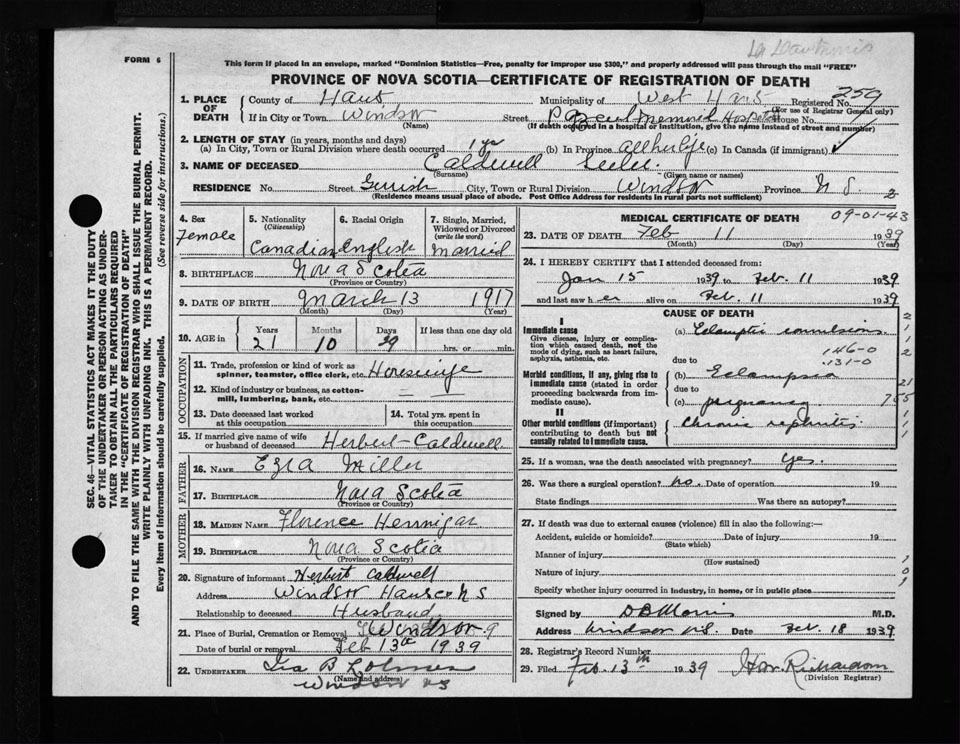 FORM 6
This form if placed in an envelope, marked "Dominion Statistics—Free, penalty for improper use $300," and properly addressed will pass through the mail "FREE"
PROVINCE OF NOVA SCOTIA—CERTIFICATE OF REGISTRATION OF DEATH
SEC. 46—VITAL STATISTICS ACT MAKES IT THE DUTY
OF THE UNDERTAKER OR PERSON ACTING AS UNDER-
TAKER TO OBTAIN ALL THE PARTICULARS REQUIRED
IN THE "CERTIFICATE OF REGISTRATION OF DEATH"
AND TO FILE THE SAME WITH THE DIVISION REGISTRAR WHO SHALL ISSUE THE BURIAL PERMIT.
WRITE PLAINLY WITH UNFADING INK. THIS IS A PERMANENT RECORD.
Every item of Information should be carefully supplied. (See reverse side for instructions.)
1. PLACE OF DEATH County of Hants Municipality of West Hants Registered No. 259
(For use of Registrar General only)
If in City or Town Windsor Street Memorial Hospital House No.
(If death occurred in a hospital or institution, give the name instead of street and number)
2. LENGTH OF STAY (in years, months and days)
(a) In City, Town or Rural Division where death occurred 1 yr (b) In Province all her life (c) In Canada (if immigrant)
3. NAME OF DECEASED Caldwell
(Surname) (Given name or names)
RESIDENCE No. Street Gerrish City, Town or Rural Division Windsor Province N S. 2
(Residence means usual place of abode. Post Office Address for residents in rural parts not sufficient)
4. Sex Female
5. Nationality (Citizenship) Canadian
6. Racial Origin English
7. Single, Married, Widowed or Divorced (write the word) Married
8. BIRTHPLACE Nova Scotia
(Province or Country)
9. DATE OF BIRTH March 13 1917
(Month) (Day) (Year)
10. AGE in Years 21 Months 10 Days 29 If less than one day old hrs. or min.
OCCUPATION
11. Trade, profession or kind of work as spinner, teamster, office clerk, etc. Housewife
12. Kind of industry or business, as cotton-mill, lumbering, bank, etc. — —
13. Date deceased last worked at this occupation
14. Total yrs. spent in this occupation
15. If married give name of wife or husband of deceased Herbert Caldwell
FATHER
16. NAME Ezra Miller
17. BIRTHPLACE Nova Scotia
(Province or Country)
MOTHER
18. MAIDEN NAME Florence Hennigar
19. BIRTHPLACE Nova Scotia
(Province or Country)
20. Signature of informant Herbert Caldwell
Address Windsor Hants Co N S
Relationship to deceased Husband
21. Place of Burial, Cremation or Removal Windsor
Date of burial or removal Feb 13th 1939
22. UNDERTAKER Ira B
(Name and address)
Windsor NS
MEDICAL CERTIFICATE OF DEATH
09-01-43
23. DATE OF DEATH Feb 11 1939
(Month) (Day) (Year)
24. I HEREBY CERTIFY that I attended deceased from:
Jan 15 1939 to Feb. 11 1939
and last saw her alive on Feb. 11 1939
CAUSE OF DEATH
I
Immediate cause
Give disease, injury or complication which caused death, not the mode of dying, such as heart failure, asphyxia, asthenia, etc.
(a) Eclamptic convulsions
146-0
131-0
due to
Morbid conditions, if any, giving rise to immediate cause (stated in order proceeding backwards from immediate cause).
(b) Eclampsia
due to
(c) pregnancy
II
Other morbid conditions (if important) contributing to death but not causally related to immediate cause.
Chronic nephritis.
25. If a woman, was the death associated with pregnancy? Yes.
26. Was there a surgical operation? no. Date of operation 19
State findings Was there an autopsy?
27. If death was due to external causes (violence) fill in also the following:—
Accident, suicide or homicide? Date of injury 19
(State which)
Manner of injury
(How sustained)
Nature of injury
Specify whether injury occurred in industry, in home, or in public place
Signed by D B Morris M.D.
Address Windsor N.S. Date Feb. 18 1939
28. Registrar's Record Number
29. Filed Feb. 13th 1939 Richardson
(Division Registrar)